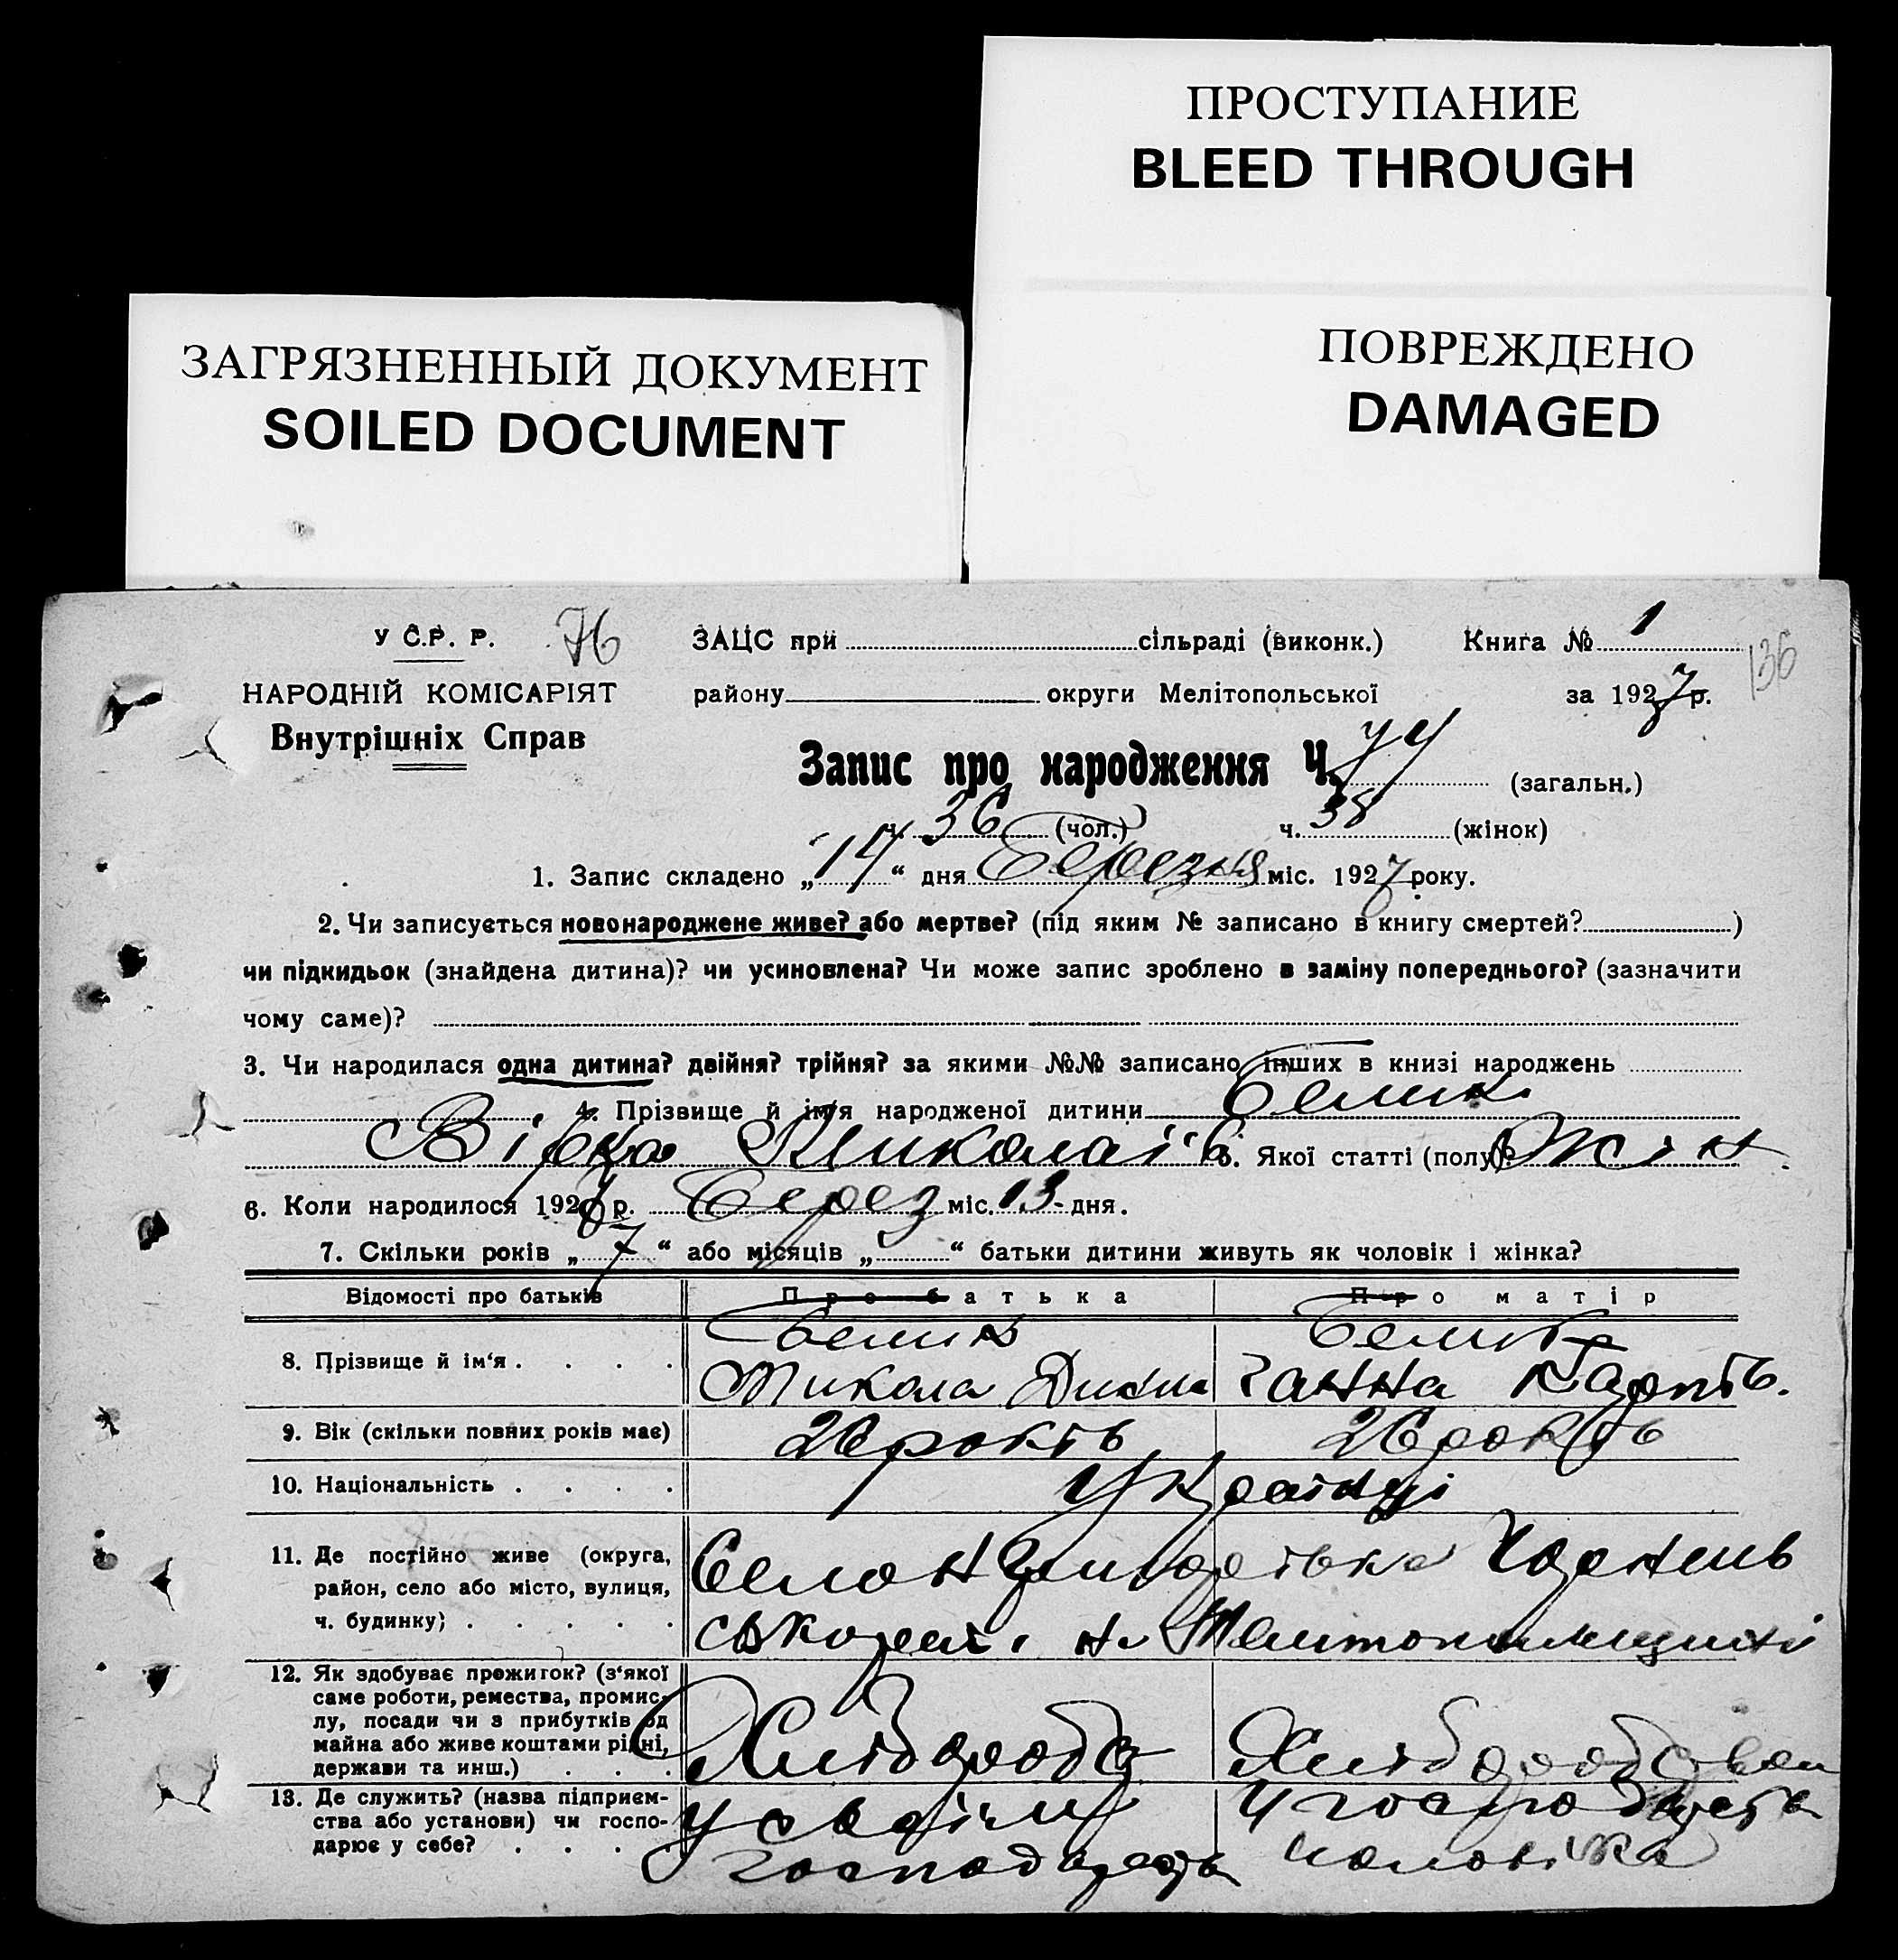 ПРОСТУПАНИЕ
BLEED THROUGH
ЗАГРЯЗНЕННЫЙ ДОКУМЕНТ
SOILED DOCUMENT
ПОВРЕЖДЕНО
DAMAGED
У С.Р. Р. 76 ЗАЦС при сільраді (виконк.) Книга № 1
136
НАРОДНІЙ КОМІСАРІЯТ району округи Мелітопольської за 1927 р.
Внутрішніх Справ
Запис про народження Ч. 74 (загальн.)
ч. 36 (чол.) ч. 38 (жінок)
1. Запис складено „14“ дня Березня міс. 1927 року.
2. Чи записується новонароджене живе? або мертве? (під яким № записано в книгу смертей? )
чи підкидьок (знайдена дитина)? чи усиновлена? Чи може запис зроблено в заміну попереднього? (зазначити
чому саме)?
3. Чи народилася одна дитина? двійня? трійня? за якими №№ записано інших в книзі народжень
4. Прізвище й ім'я народженої дитини
Віра Миколаїв 5. Якої статті (полу)? Жін.
6. Коли народилося 1927 р. Берез міс. 13 дня.
7. Скільки років „7“ або місяців „ “ батьки дитини живуть як чоловік і жінка?
Відомості про батьків Про батька Про матір
8. Прізвище й ім'я . . . .
Микола Ганна
9. Вік (скільки повних років має) 26 років 26 років
10. Національність . . . . Українці
11. Де постійно живе (округа,
район, село або місто, вулиця,
ч. будинку) . . . . .
Село
12. Як здобуває прожиток? (з'якої
саме роботи, ремества, промис-
лу, посади чи з прибутків од
майна або живе коштами рідні,
держави та инш.) . . .
Хлібороб
13. Де служить? (назва підприєм-
ства або установи) чи госпо-
дарює у себе? . . . .
у своїм у
чоловіка